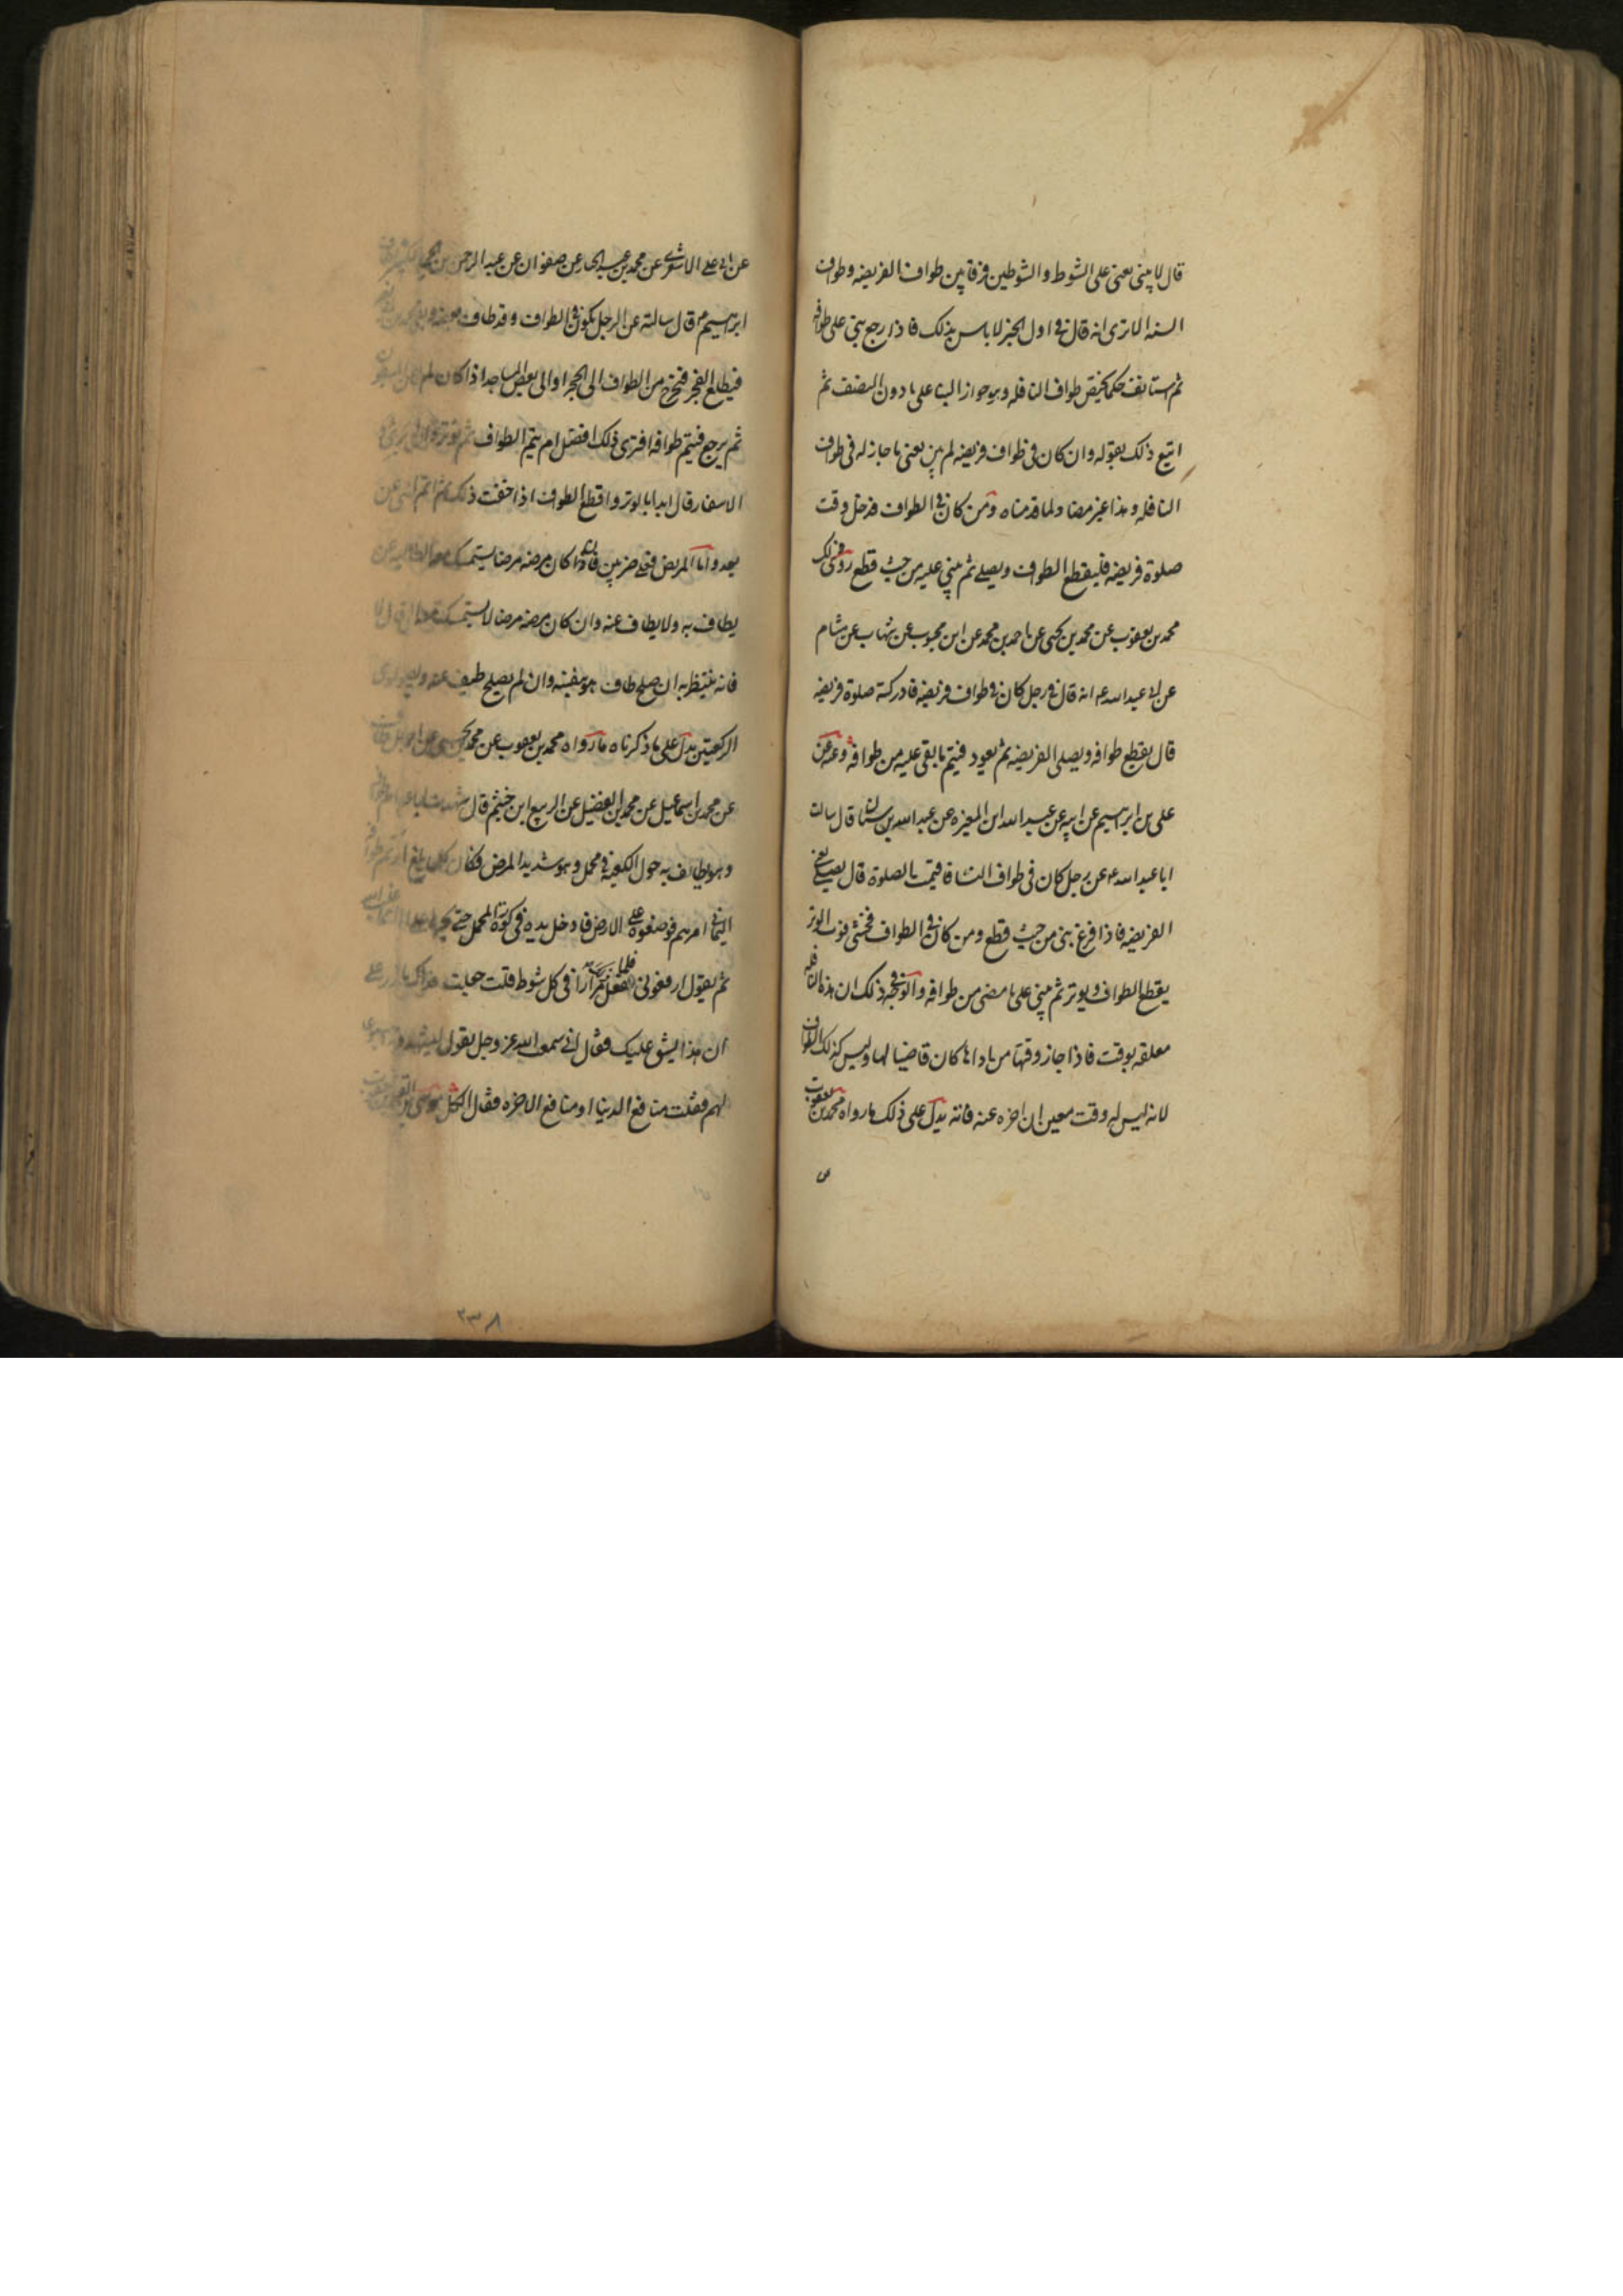 قال لا يبنى يعنى على الشوط والشوطين فرقا بين طواف الفريضه وطواف
السنه الا ترى انه قال فى اول الخبر لا باس بذلك فاذا رجع بنى على طوافه
ثم استانف حكما يخص طواف النافله وهو جواز البنا على ما دون النصف ثم
اتبع ذلك بقوله وان كان فى طواف فريضه لم يبن يعنى ما جاز له فى طواف
النافله وهذا غير مضاد لما قدمناه ومن كان فى الطواف فدخل وقت
صلوة فريضه فليقطع الطواف ويصلى ثم يبنى عليه من حيث قطع روى ذلك
محمد بن يعقوب عن محمد بن يحيى عن احمد بن محمد عن ابن محبوب عن شهاب عن هشام
عن ابى عبد الله ع انه قال فى رجل كان فى طواف فريضه فادركته صلوة فريضه
قال يقطع طوافه ويصلى الفريضه ثم يعود فيتم ما بقى عليه من طوافه وعنه عن
على بن ابراهيم عن ابيه عن عبد الله ابن المغيره عن عبد الله بن سنان قال سالت
ابا عبد الله ع عن رجل كان فى طواف النسا فاقيمت الصلوة قال يصلى يعنى
الفريضه فاذا فرغ بنى من حيث قطع ومن كان فى الطواف فخشى فوت الوتر
يقطع الطواف ويوتر ثم يبنى على ما مضى من طوافه والوجه فى ذلك ان هذه النافله
معلقه بوقت فاذا جاز وقتها من اداها كان قاضيا لها وليس كذلك الطواف
لانه ليس له وقت معين ان اخره عنه فاته يدل على ذلك ما رواه محمد بن يعقوب
عن ابى على الاشعرى عن محمد بن عبد الجبار عن صفوان عن عبد الرحمن بن الحجاج عن ابى
ابراهيم ع قال سالته عن الرجل يكون فى الطواف وقد طاف بعضه وبقى عليه بعضه
فيطلع الفجر فيخرج من الطواف الى الحجر او الى بعض المساجد اذا كان لم
ثم يرجع فيتم طوافه افترى ذلك افضل ام يتم الطواف ثم يوتر
الاسفار قال ابدا بالوتر واقطع الطواف اذا خفت ذلك ثم اتم
بعد واما المريض فعلى ضربين فان اذا كان مرضه مرضا يستمسك معه
يطاف به ولا يطاف عنه وان كان مرضه مرضا لا يستمسك معه
فانه ينتظر به ان صلح طاف هو بنفسه وان لم يصلح طيف عنه ويصلى
الركعتين يدل على ما ذكرناه ما رواه محمد بن يعقوب عن محمد بن يحيى عن
عن محمد بن اسماعيل عن محمد ابن الفضيل عن الربيع ابن خيثم قال شهدت ابا عبد الله
وهو يطاف به حول الكعبه فى محمل وهو شديد المرض فكان كلما بلغ
اليمانى امرهم فوضعوه على الارض فادخل يده فى كوة المحمل حتى يجرها على
ثم يقول ارفعونى فلما فعل ذلك مرارا فى كل شوط قلت جعلت فداك
ان هذا يشق عليك فقال انى سمعت الله عز وجل يقول ليشهدوا
لهم فقلت منافع الدنيا او منافع الاخره فقال الكل
س
٢٣٨